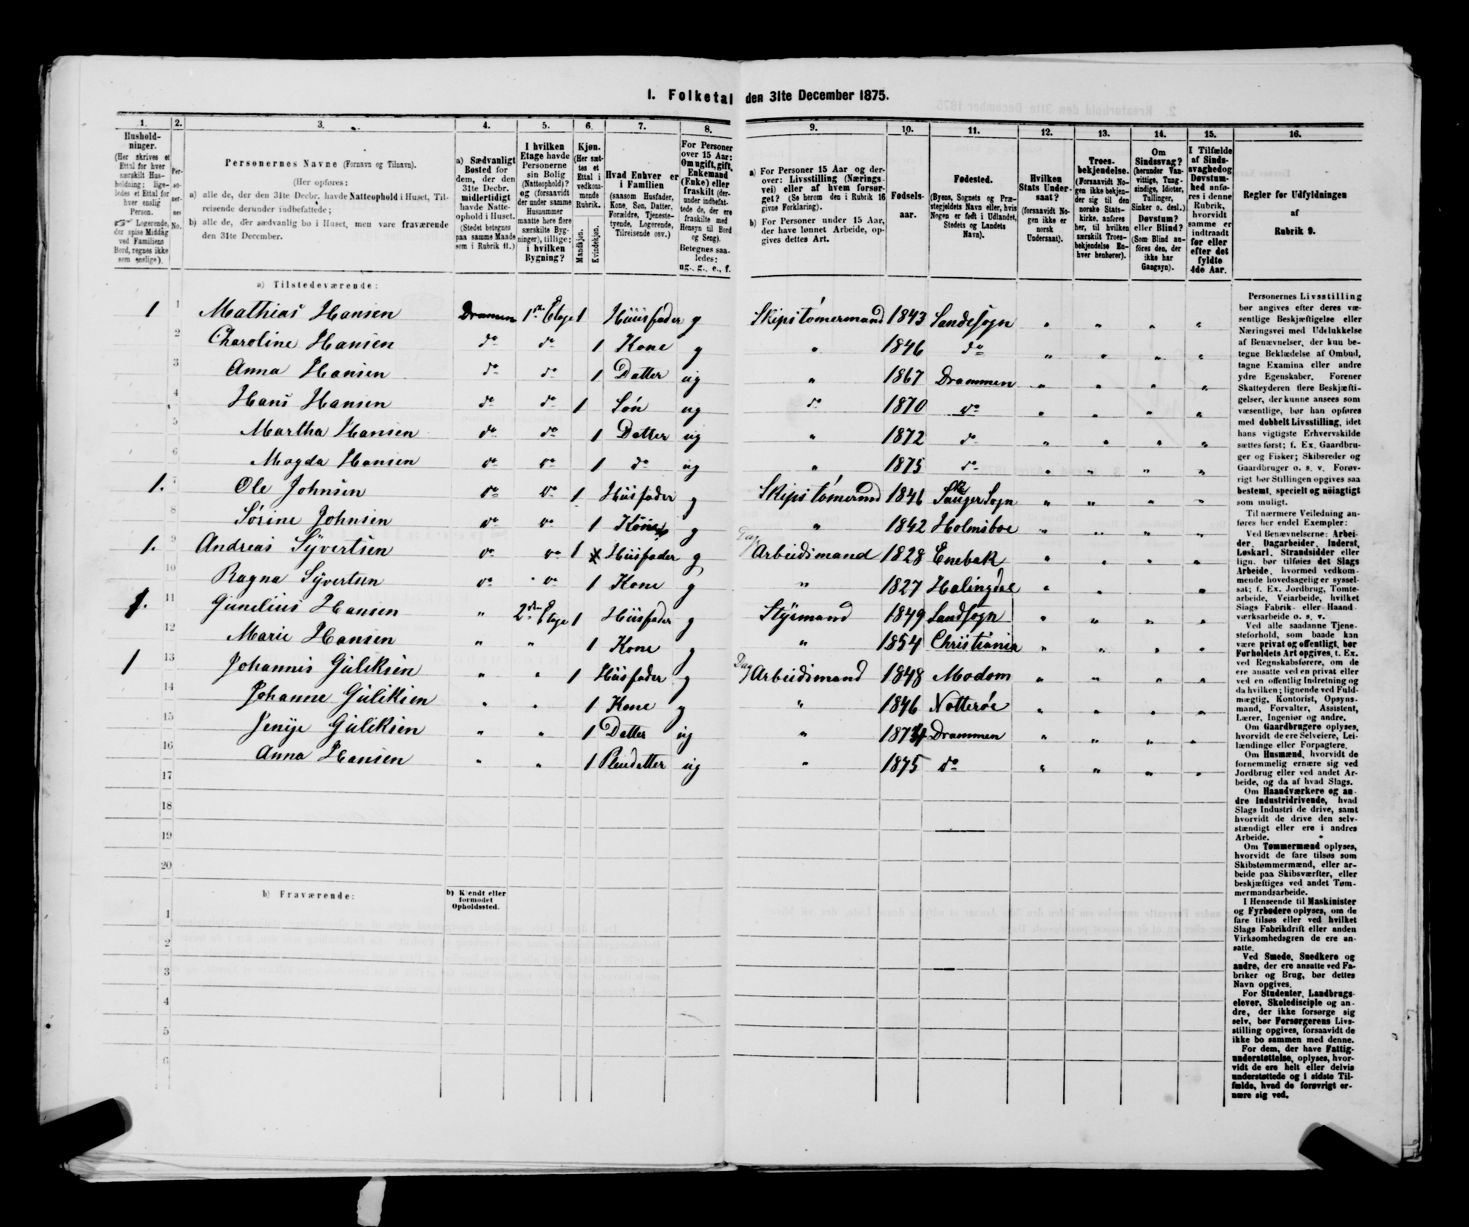 1. Folketal den 31te December 1875.
1. 2. 3. 4. 5. 6. 7. 8. 9. 10. 11. 12. 13. 14. 15. 16.
Hushold-
ninger.
(Her skrives et
Ettal for hver
særskilt Hus-
holdning; lige-
ledes et Ettal for
hver enslig
Person.
Logerende,
der spise Middag
ved Familiens
Bord, regnes ikke
som enslige).
Per-
so-
ner-
nes
No.
Personernes Navne (Fornavn og Tilnavn).
(Her opføres:
a) alle de, der den 31te Decbr. havde Natteophold i Huset, Til-
reisende derunder indbefattede;
b) alle de, der sædvanlig bo i Huset, men vare fraværende
den 31te December.
a) Sædvanligt
Bosted for
dem, der den
31te Decbr.
midlertidigt
havde Natte-
ophold i Huset.
(Stedet betegnes
paa samme Maade
som i Rubrik 11.)
I hvilken
Etage havde
Personerne
sin Bolig
(Natteophold)?
og (forsaavidt
der under samme
Husnummer
maatte høre flere
særskilte Byg-
ninger), tillige:
i hvilken
Bygning?
Kjøn.
(Her sæt-
tes et
Ettal i
vedkom-
mende
Rubrik.)
Mandkjøn.
Kvindekjøn.
Hvad Enhver er
i Familien
(saasom Husfader,
Kone, Søn, Datter,
Forældre, Tjeneste-
tyende, Logerende,
Tilreisende osv.)
For Personer
over 15 Aar:
Om ugift, gift,
Enkemand
(Enke) eller
fraskilt (der-
under indbefat-
tede de, der ere
fraskilte med
Hensyn til Bord
og Seng).
Betegnes saa-
ledes:
ug., g., e., f.
a) For Personer 15 Aar og der-
over: Livsstilling (Nærings-
vei) eller af hvem forsør-
get? (Se herom den i Rubrik 16
givne Forklaring).
b) For Personer under 15 Aar,
der have lønnet Arbeide, op-
gives dettes Art.
Fødsels-
aar.
Fødested.
(Byens, Sognets og Præ-
stegjeldets Navn eller, hvis
Nogen er født i Udlandet,
Stedets og Landets
Navn).
Hvilken
Stats Under-
saat?
(forsaavidt No-
gen ikke er
norsk
Undersaat).
Troes-
bekjendelse.
(Forsaavidt No-
gen ikke bekjen-
der sig til den
norske Stats-
kirke, anføres
her, til hvilken
særskilt Troes-
bekjendelse En-
hver henhører).
Om
Sindssvag?
(herunder Van-
vittige, Tung-
sindige, Idioter,
Tullinger,
Sinker o. desl.)
Døvstum?
eller Blind?
(Som Blind an-
føres den, der
ikke har
Gangsyn).
I Tilfælde
af Sinds-
svaghed og
Døvstum-
hed anfø-
res i denne
Rubrik,
hvorvidt
samme er
indtraadt
før eller
efter det
fyldte
4de Aar.
Regler for Udfyldningen
af
Rubrik 9.
a) Tilstedeværende:
1 1 Mathias Hansen Dramen 1ste Etage 1 Huusfader g Skipstømermand 1843 Sandesogn
2 Charoline Hansen do do 1 Kone g " 1846 do
3 Anna Hansen do do 1 Datter ug " 1867 Drammen
4 Hans Hansen do do 1 Søn ug do 1870 do
5 Martha Hansen do do 1 Datter ug " 1872 do
6 Magda Hansen do do 1 do ug " 1875 do
1. 7 Ole Johnsen do do 1 Husfader g Skipstømermd 1846 Sogn
8 Sørine Johnsen do do 1 Kone g " 1842 Holmsboe
1. 9 Andreas Syvertsen do do 1 Husfader g Dag Arbeidsmand 1828 Enebak
10 Ragna Syvertsen do do 1 Kone g " 1827 Halingdal
1. 11 Gunelius Hansen " 2den Etage 1 Husfader g Styrmand 1849 Sandsogn
12 Marie Hansen " " 1 Kone g " 1854 Christiania
1 13 Johannis Guliksen " " 1 Husfader g Dag Arbeidsmand 1848 Modom
14 Johanne Guliksen " " 1 Kone g " 1846 Notterøe
15 Jenye Guliksen " " 1 Datter ug " 1874 Drammen
16 Anna Hansen " " 1 Pleiedatter ug " 1875 do
17
18
19
20
b) Fraværende:
b) Kjendt eller
formodet
Opholdssted.
1
2
3
4
5
6
Personernes Livsstilling
bør angives efter deres væ-
sentlige Beskjæftigelse eller
Næringsvei med Udelukkelse
af Benævnelser, der kun be-
tegne Beklædelse af Ombud,
tagne Examina eller andre
ydre Egenskaber. Forener
Skatteyderen flere Beskjæfti-
gelser, der kunne ansees som
væsentlige, bør han opføres
med dobbelt Livsstilling, idet
hans vigtigste Erhvervskilde
sættes først; f. Ex. Gaardbru-
ger og Fisker; Skibsreder og
Gaardbruger o. s. v. Forøv-
rigt bør Stillingen opgives saa
bestemt, specielt og nøiagtigt
som muligt.
Til nærmere Veiledning an-
føres her endel Exempler:
Ved Benævnelserne: Arbei-
der, Dagarbeider, Inderst,
Løskarl, Strandsidder eller
lign. bør tilføies det Slags
Arbeide, hvormed vedkom-
mende hovedsagelig er syssel-
sat; f. Ex. Jordbrug, Tomte-
arbeide, Veiarbeide, hvilket
Slags Fabrik- eller Haand-
værksarbeide o. s. v.
Ved alle saadanne Tjene-
steforhold, som baade kan
være privat og offentligt, bør
Forholdets Art opgives, t. Ex.
ved Regnskabsførere, om de
ere ansatte ved en privat eller
ved en offentlig Indretning og
da hvilken; lignende ved Fuld-
mægtig, Kontorist, Opsyns-
mand, Forvalter, Assistent,
Lærer, Ingeniør og andre.
Om Gaardbrugere oplyses,
hvorvidt de ere Selveiere, Lei-
lændinge eller Forpagtere.
Om Husmænd, hvorvidt de
fornemmelig ernære sig ved
Jordbrug eller ved andet Ar-
beide, og da af hvad Slags.
Om Haandværkere og an-
dre Industridrivende, hvad
Slags Industri de drive, samt
hvorvidt de drive den selv-
stændigt eller ere i andres
Arbeide.
Om Tømmermænd oplyses,
hvorvidt de fare tilsøs som
Skibstømmermænd, eller ar-
beide paa Skibsværfter, eller
beskjæftiges ved andet Tøm-
mermandsarbeide.
I Henseende til Maskinister
og Fyrbødere oplyses, om de
fare tilsøs eller ved hvilket
Slags Fabrikdrift eller anden
Virksomhedsgren de ere an-
satte.
Ved Smede, Snedkere og
andre, der ere ansatte ved Fa-
briker og Brug, bør dettes
Navn opgives.
For Studenter, Landbrugs-
elever, Skoledisciple og an-
dre, der ikke forsørge sig
selv, bør Forsørgerens Livs-
stilling opgives, forsaavidt de
ikke bo sammen med denne.
For dem, der have Fattig-
understøttelse, oplyses, hvor-
vidt de ere helt eller delvis
understøttede og i sidste Til-
fælde, hvad de forøvrigt er-
nære sig ved.